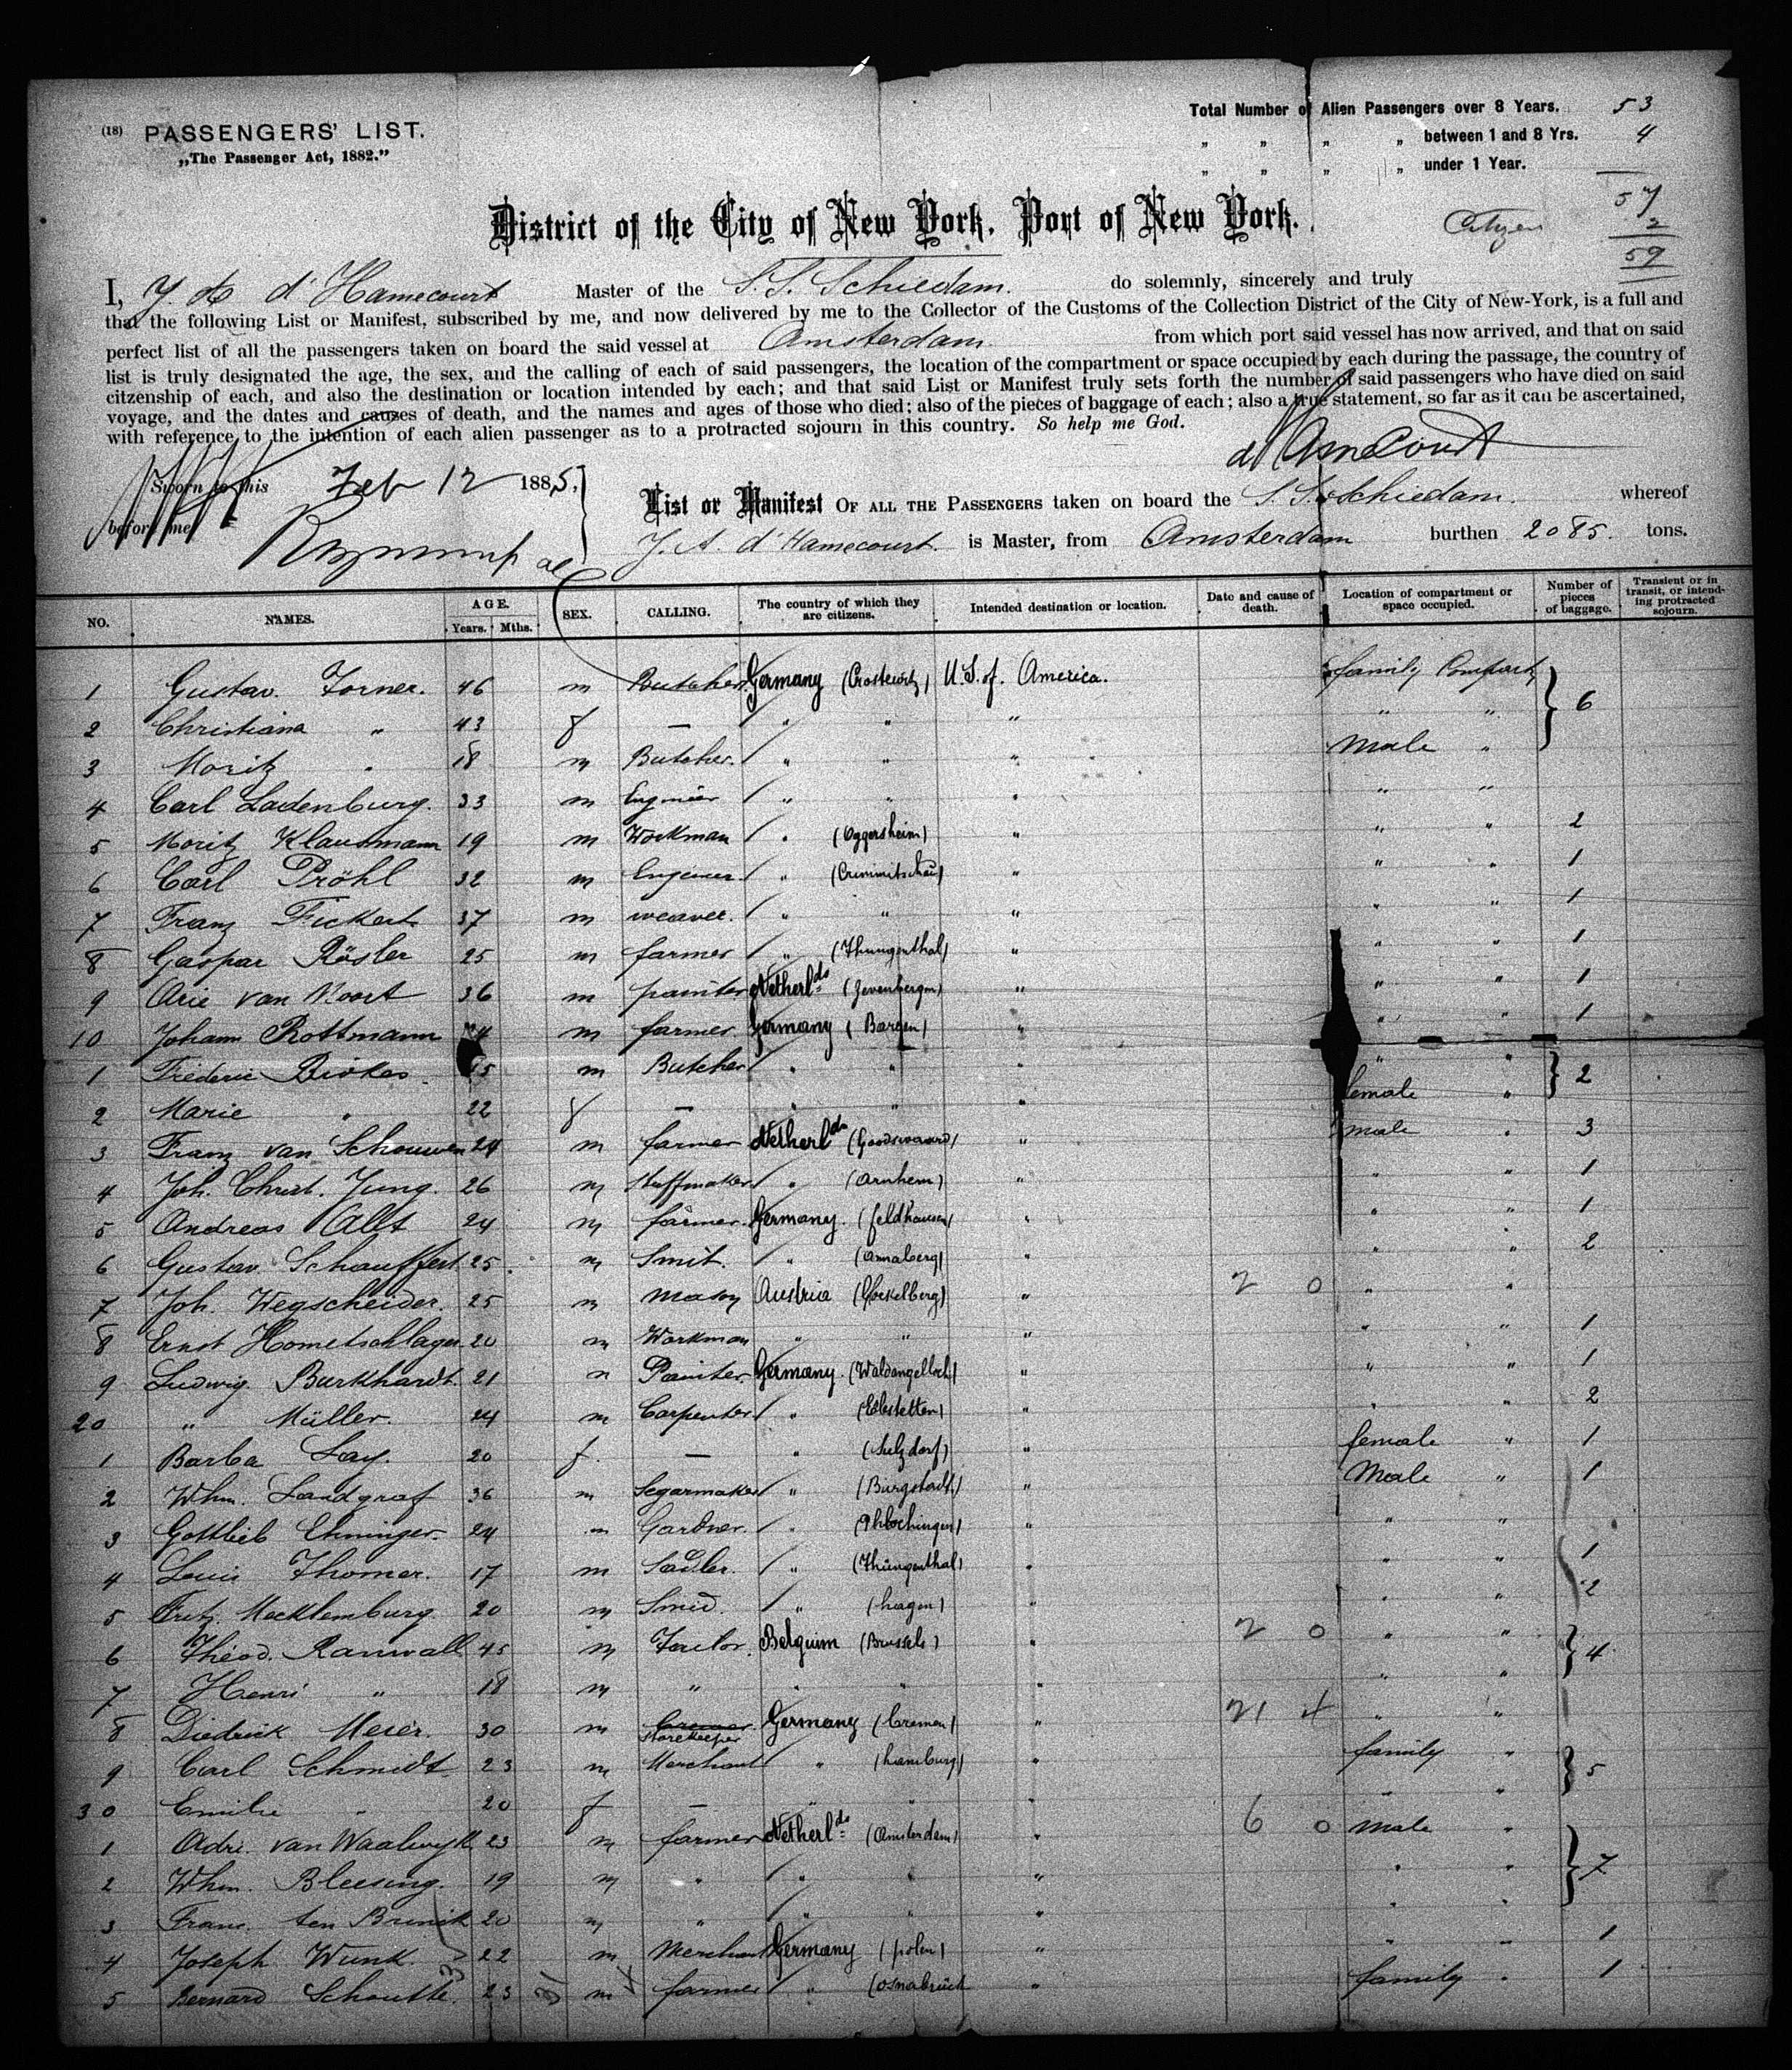 (18) PASSENGERS' LIST.
„The Passenger Act, 1882."
Total Number of Alien Passengers over 8 Years. 53
„ „ „ „ between 1 and 8 Yrs. 4
„ „ „ „ under 1 Year.
57
2
59
District of the City of New York, Port of New York.
I, J. A. d'Hamecourt Master of the S.S. Schiedam. do solemnly, sincerely and truly
that the following List or Manifest, subscribed by me, and now delivered by me to the Collector of the Customs of the Collection District of the City of New-York, is a full and
perfect list of all the passengers taken on board the said vessel at Amsterdam from which port said vessel has now arrived, and that on said
list is truly designated the age, the sex, and the calling of each of said passengers, the location of the compartment or space occupied by each during the passage, the country of
citzenship of each, and also the destination or location intended by each; and that said List or Manifest truly sets forth the number of said passengers who have died on said
voyage, and the dates and causes of death, and the names and ages of those who died; also of the pieces of baggage of each; also a true statement, so far as it can be ascertained,
with reference to the intention of each alien passenger as to a protracted sojourn in this country. So help me God.
d'Hamecourt
Sworn to this Feb 12 1885,
before me
List or Manifest OF ALL THE PASSENGERS taken on board the S.S. Schiedam. whereof
J. A. d'Hamecourt. is Master, from Amsterdam burthen 2085. tons.
NO. NAMES. AGE. Years. Mths. SEX. CALLING. The country of which they are citizens. Intended destination or location. Date and cause of death. Location of compartment or space occupied. Number of pieces of baggage. Transient or in transit, or intending protracted sojourn.
1 Gustav. Forner. 46 m Butcher. Germany U.S. of. America. family 6
2 Christiana „ 43 f — „ „ „ „ „
3 Moritz „ 18 m Butcher. „ „ „ Male „
4 Carl Ladenburg. 33 m Engineer „ „ „ „ „
5 Moritz Klausmann 19 m Workman „ (Oggersheim) „ „ „ 2
6 Carl Pröhl 32 m Engineer. „ (Crimmitschau) „ „ „ 1
7 Franz Fickert 37 m weaver. „ „ „ „ „ 1
8 Gaspar Rösler 25 m farmer „ (Thungenthal) „ „ „ 1
9 Arie van Noort 36 m painter Netherlds (Zevenbergen) „ „ „ 1
10 Johann Rottmann m farmer Germany (Bargen) „ „ „ 1
1 Frederic m Butcher „ „ „ „ „ 2
2 Marie „ 22 f — „ „ „ female „
3 Franz van Schouwen 24 m farmer Netherlds (Goodswaard) „ male „ 3
4 Joh. Christ. Jung. 26 m Stuffmaker „ (Arnhem) „ „ „ 1
5 Andreas Alt 24 m farmer. Germany. (feldhausen) „ „ „ 1
6 Gustav Schauffert 25. m Smit. „ (Annaberg) „ „ „ 2
7 Joh. Wegscheider. 25 m Mason Austria (Gockelberg) „ 2 0 „ „
8 Ernst Hometschlager 20 m Workman „ „ „ „ „ 1
9 Ludwig Burkhardt. 21 m Painter. Germany. (Waldangelloch) „ „ „ 1
20 „ Müller. 24 m Carpenter „ (Ebstetten) „ „ „ 2
1 Barba Lay. 20 f. — „ (Sulzdorf) „ female „ 1
2 Whm. Landgraf 36 m Segarmaker „ (Burgstadt) „ Male „ 1
3 Gottlieb Ehninger. 24 m Gardner. „ (Phlochingen) „ „ „
4 Louis Thomer. 17 m Sadler. „ (Thüngenthal) „ „ „ 1
5 Fritz Mecklemburg. 20 m Smid. „ (hagen) „ „ „ 2
6 Théod. Ranwall 45 m Tailor. Belguim (Brussels) „ 2 0 „ „ 4
7 Henri „ 18 m „ „ „ „ „ „
8 Diedrick Meier. 30 m Storekeeper Germany (bremen) „ 21 4 „ „
9 Carl Schmidt 23 m Merchant „ (hamburg) „ family „ 5
30 Emilie „ 20 f — „ „ „ „ „
1 Adri. van Waalwyk 23 m farmer Netherlds (Amsterdam) „ 6 0 male „ 7
2 Whm. Bleesing. 19 m „ „ „ „ „
3 Franc. ten Brinck 20 m „ „ „ „ „ „
4 Joseph Wunk. 22 m Merchant Germany (polen) „ „ „ 1
5 Bernard Schoutte. 23 m farmer „ (Osnabrück „ family „ 1